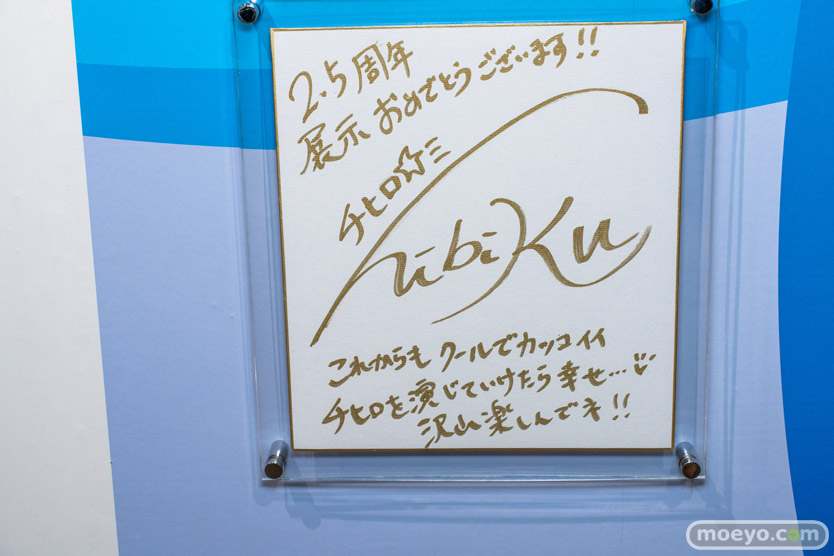 2.5周年
展示おめでとうございます!!
チヒロ☆ミ
hibiku
これからもクールでカッコイイ
チヒロを演じていけたら幸せ…
沢山楽しんでネ!!
moeyo.com